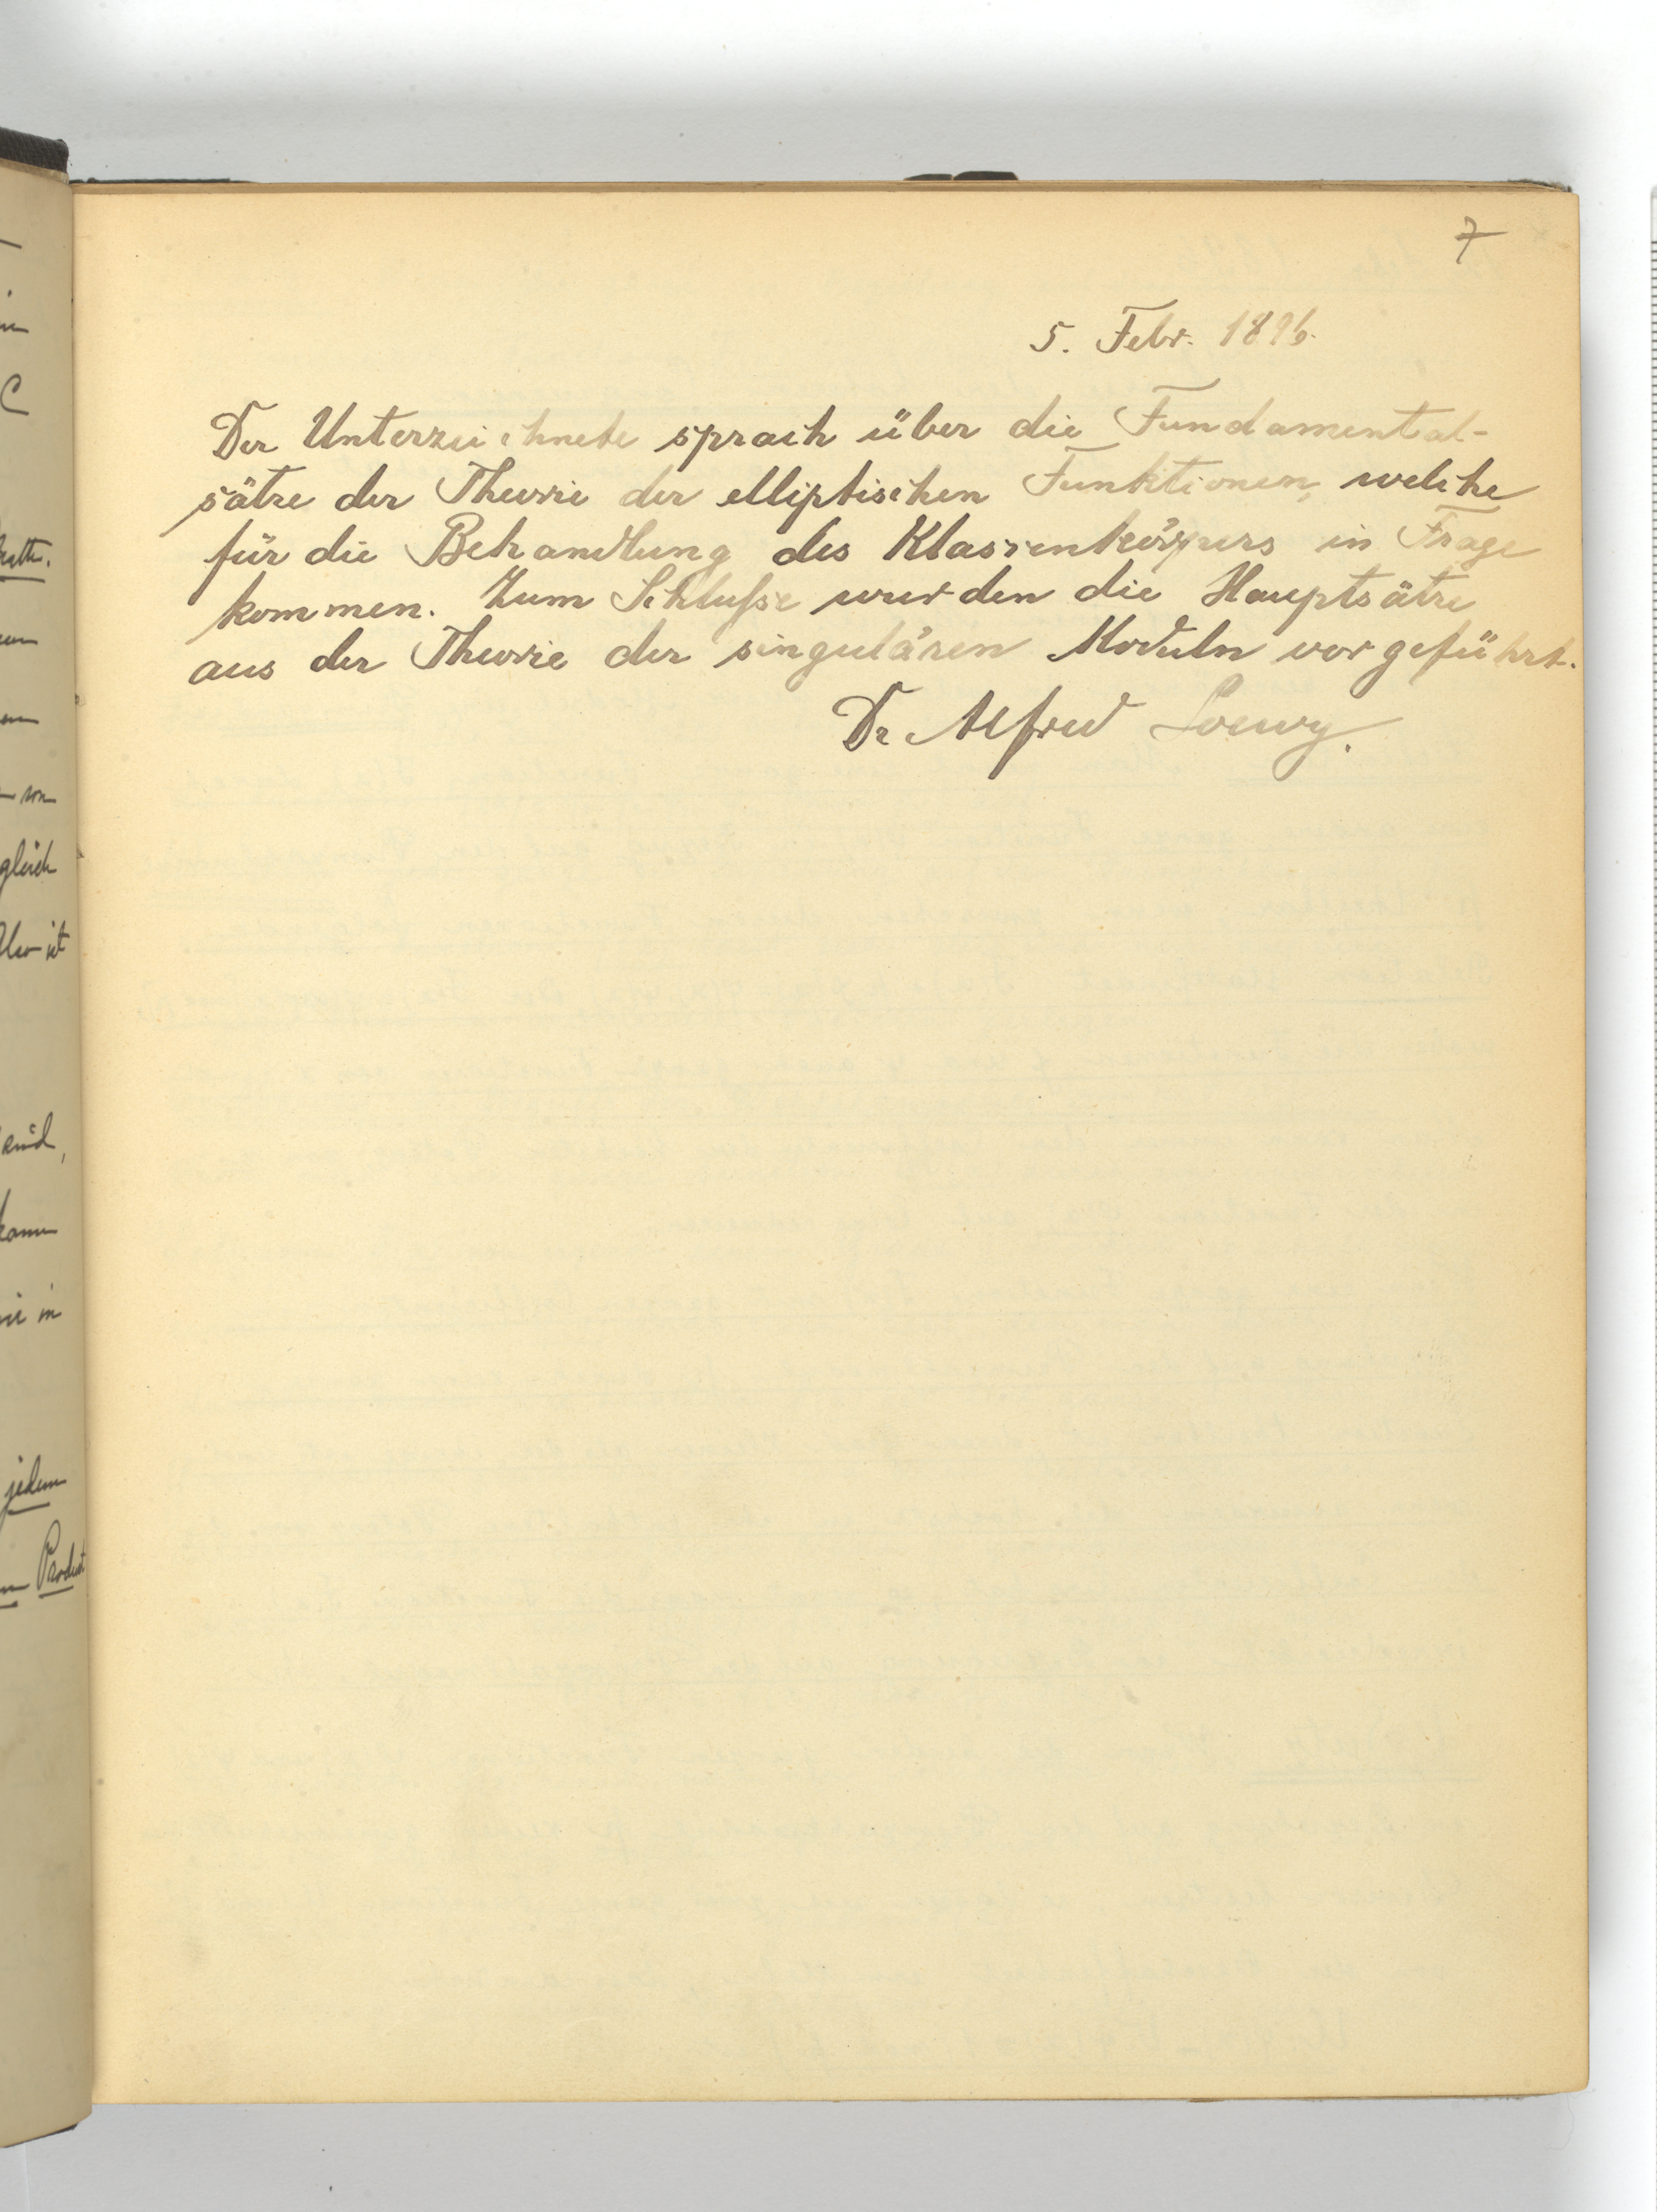 7
5. Febr. 1896.
Der Unterzeichnete sprach über die Fundamental-
sätze der Theorie der elliptischen Funktionen, welche
für die Behandlung des Klassenkörpers in Frage
kommen. Zum Schlufse wurden die Hauptsätze
aus der Theorie der singulären Moduln vorgeführt.
Dr Alfred Loewy.
gleich
Also ist
sind,
kann
jedem
Product